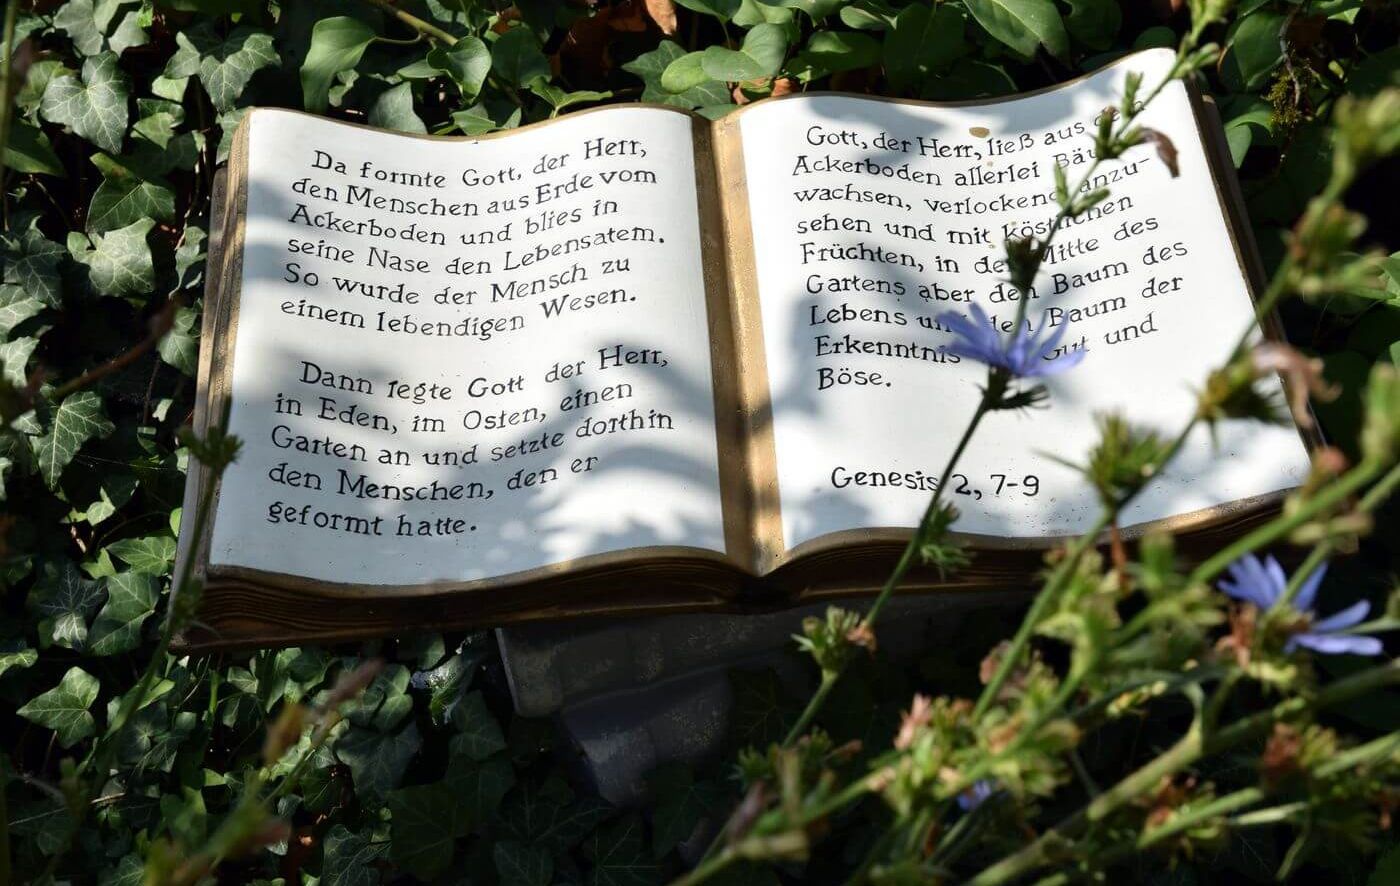 Da formte Gott, der Herr,
den Menschen aus Erde vom
Ackerboden und blies in
seine Nase den Lebensatem.
So wurde der Mensch zu
einem lebendigen Wesen.
Dann legte Gott der Herr,
in Eden, im Osten, einen
Garten an und setzte dorthin
den Menschen, den er
geformt hatte.
Gott, der Herr, ließ aus
Ackerboden allerlei
wachsen, verlockend anzu-
sehen und mit köstlichen
Früchten, in der Mitte des
Gartens aber den Baum des
Lebens und den Baum der
Erkenntnis Gut und
Böse.
Genesis 2, 7-9